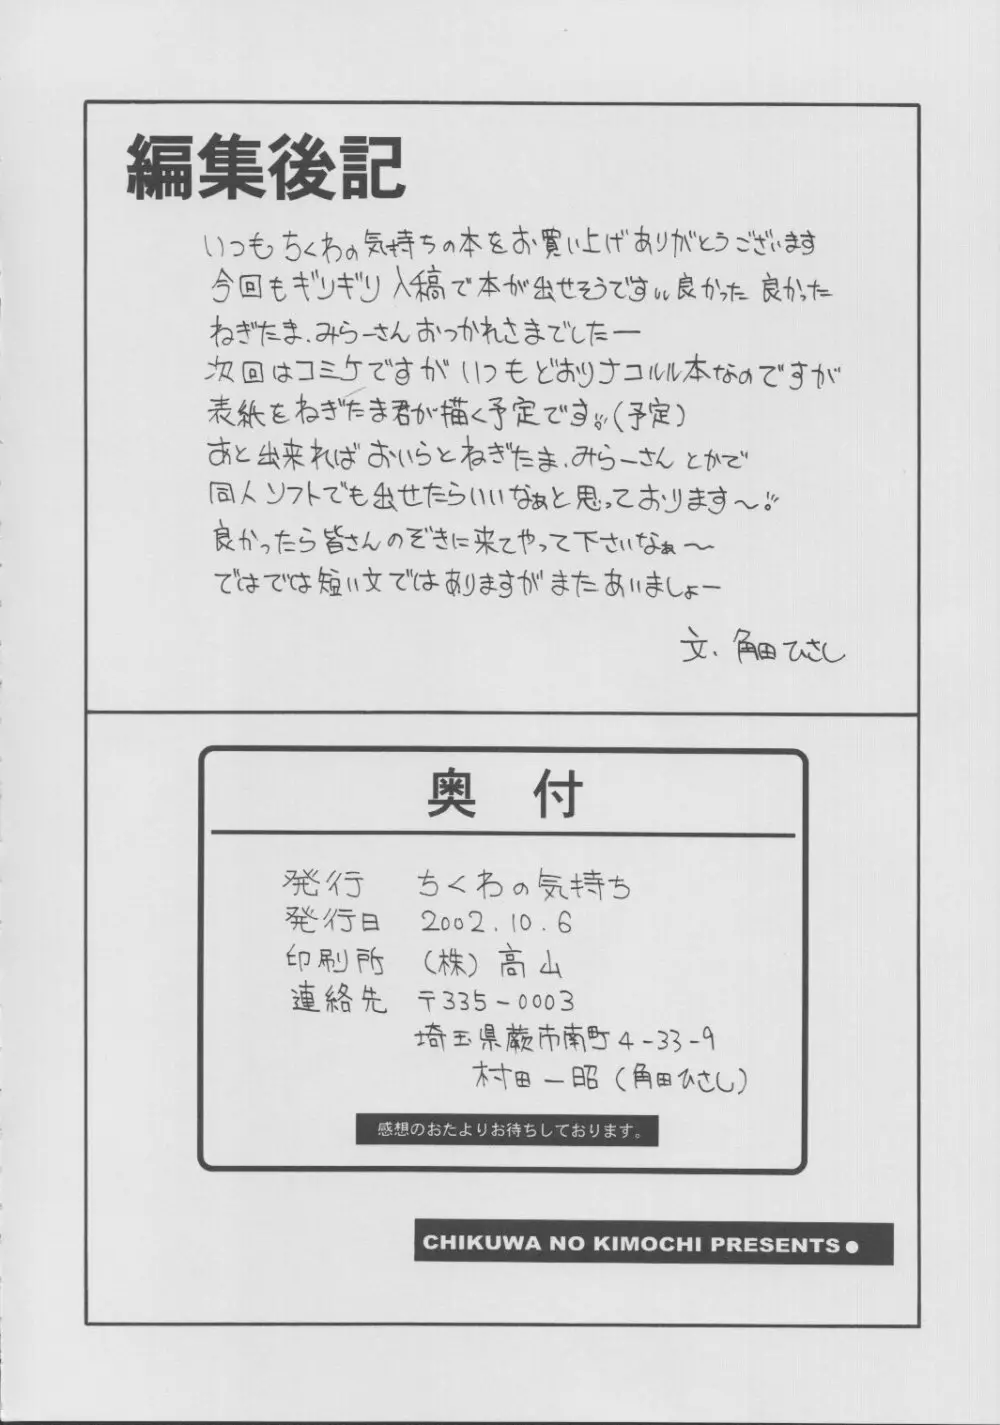 編集後記
いつもちくわの気持ちの本をお買い上げありがとうございます
今回もギリギリ入稿で本が出せそうです!! 良かった 良かった
ねぎたま、みらーさんおつかれさまでしたー
次回はコミケですがいつもどおりナコルル本なのですが
表紙をねぎたま君が描く予定です!!(予定)
あと出来ればおいらとねぎたま、みらーさんとかで
同人ソフトでも出せたらいいなぁと思っております〜!!
良かったら皆さんのぞきに来てやって下さいなぁ〜
ではでは短い文ではありますがまたあいましょー
文、角田ひさし
奥 付
発行 ちくわの気持ち
発行日 2002.10.6
印刷所 (株)高山
連絡先 〒335-0003
埼玉県蕨市南町4-33-9
村田一昭(角田ひさし)
感想のおたよりお待ちしております。
CHIKUWA NO KIMOCHI PRESENTS●